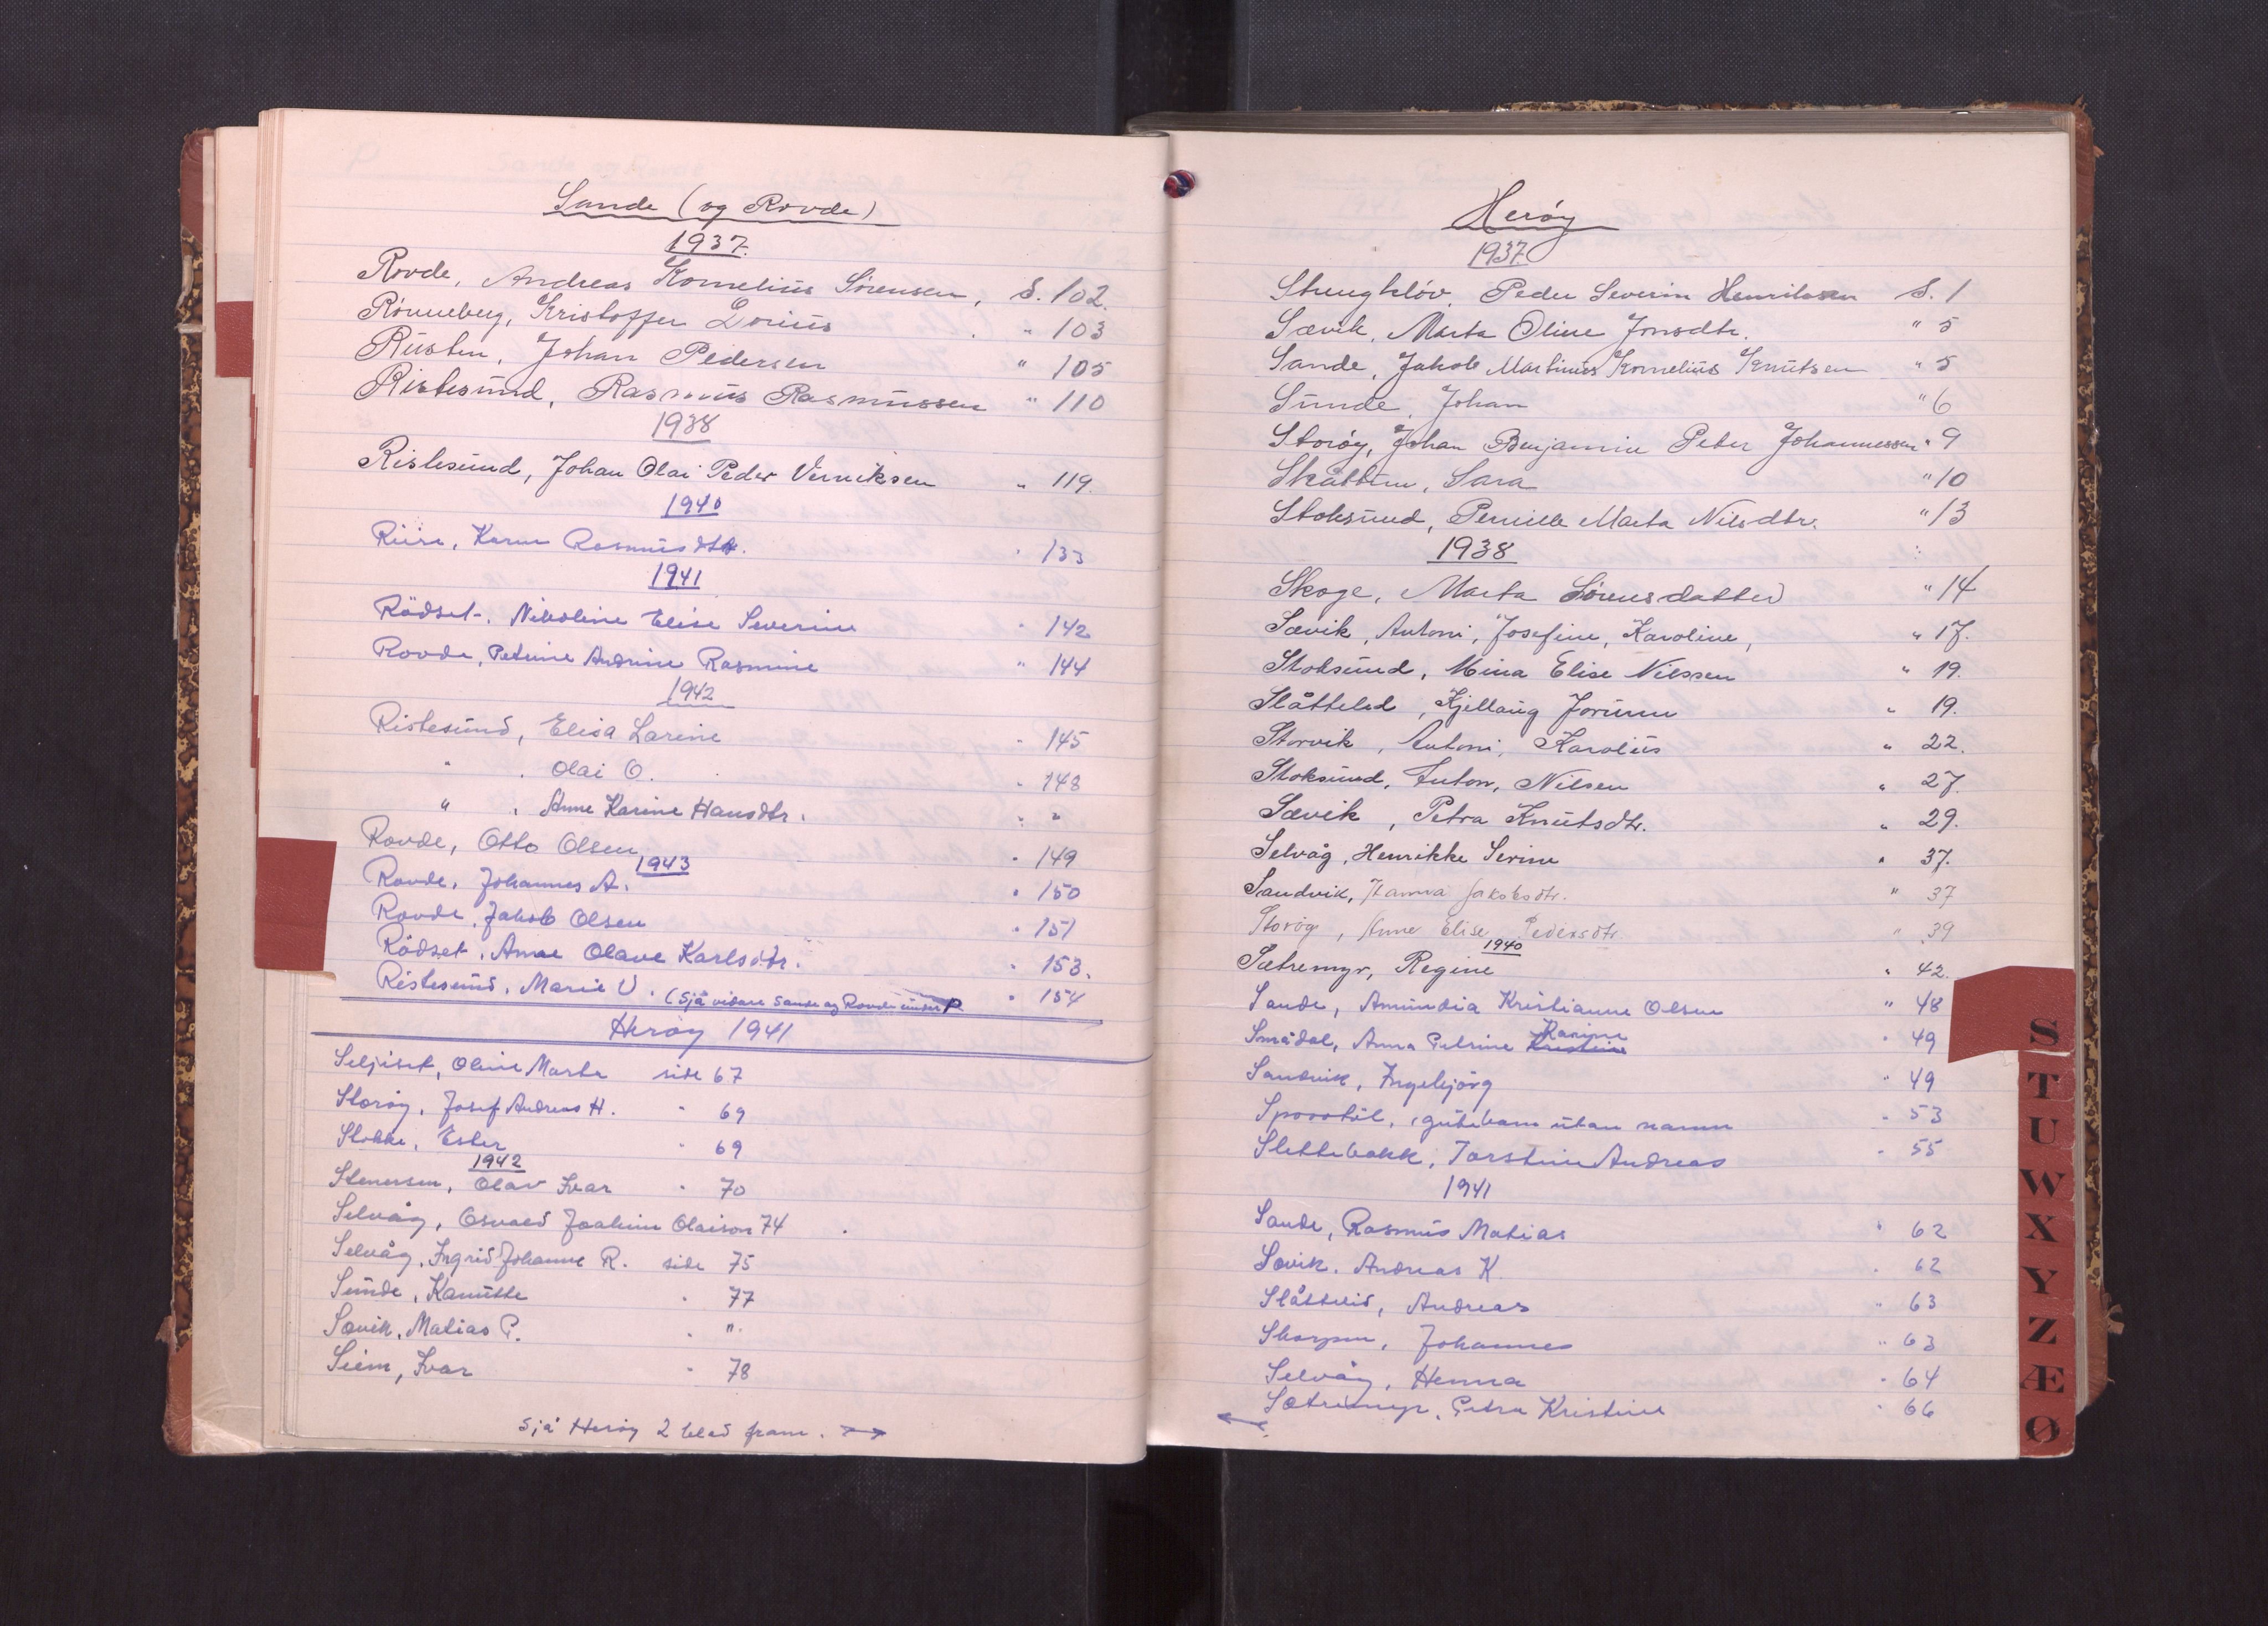 Sande (og Rovde)
1937.
Rovde, Andreas Kornelius Sørensen, S. 102.
Rønneberg, Kristoffer Dorius " 103
Rusten, Johan Pedersen " 105
Ristesund, Rasmus Rasmussen " 110
1938
Ristesund, Johan Olai Peder Verniksen " 119.
1940
Riise, Karen Rasmusdtr. " 133
1941
Rödset, Nikoline Elise Severine " 142
Rovde, Petrine Andrine Rasmine " 144
1942
Ristesund, Elisa Larine " 145
" , Olai O. " 148
" , Anne Karine Hansdtr. " "
Rovde, Otto Olsen " 149
1943
Rovde, Johannes A. " 150
Rovde, Jakob Olsen " 151
Rödset, Anne Olave Karlsdtr. " 153.
Ristesund, Marie V. (Sjå vidare Sande og Rovde under P. " 154
Herøy 1941
Seljeset, Oline Marta side 67
Storøy, Josef Andreas H. " 69
Stokke, Ester " 69
1942
Stenersen, Olav Ivar " 70
Selvåg, Osvald Joakim Olaison 74
Selvåg, Ingrid Johanne R. side 75
Sunde, Kanutte " 77
Sævik, Matias P. " "
Siem, Ivar " 78
Sjå Herøy 2 blad fram. →
Herøy
1937.
Strengkløv, Peder Severin Henriksen S. 1
Sævik, Marta Oline Jonsdtr. " 5
Sande, Jakob Martinus Kornelius Knutsen " 5
Sunde, Johan " 6
Storøy, Johan Benjamin Peter Johannessen " 9
Skåttun, Sara " 10
Stoksund, Pernille Marta Nilsdtr. " 13
1938
Skoge, Marta Sørensdatter " 14
Sævik, Antoni, Josefine, Karoline, " 17.
Stoksund, Mina Elise Nilssen " 19.
Slåttelid, Kjellaug Jorunn " 19.
Storvik, Antoni, Karolius " 22.
Stoksund, Anton, Nilsen " 27.
Sævik, Petra Knutsdtr. " 29.
Selvåg, Henrikke Serine " 37.
Sandvik, Hanna Jakobsdtr. " 37
Storøy, Anne Elise Pedersdtr. " 39
1940
Sætremyr, Regine " 42.
Sande, Amundia Kristianne Olsen " 48
Smådal, Anna Petrine Karine " 49
Sandvik, Ingebjörg " 49
Sporstöl, gutebarn utan namn " 53
Slettebakk, Torstein Andreas " 55
1941
Sande, Rasmus Matias " 62
Sævik, Andreas K. " 62
Slåttelid, Andreas " 63
Skorpen, Johannes " 63
Selvåg, Henna " 64
Sætremyr, Petra Kristine " 66
←
S
T
U
W
X
Y
Z
Æ
Ø